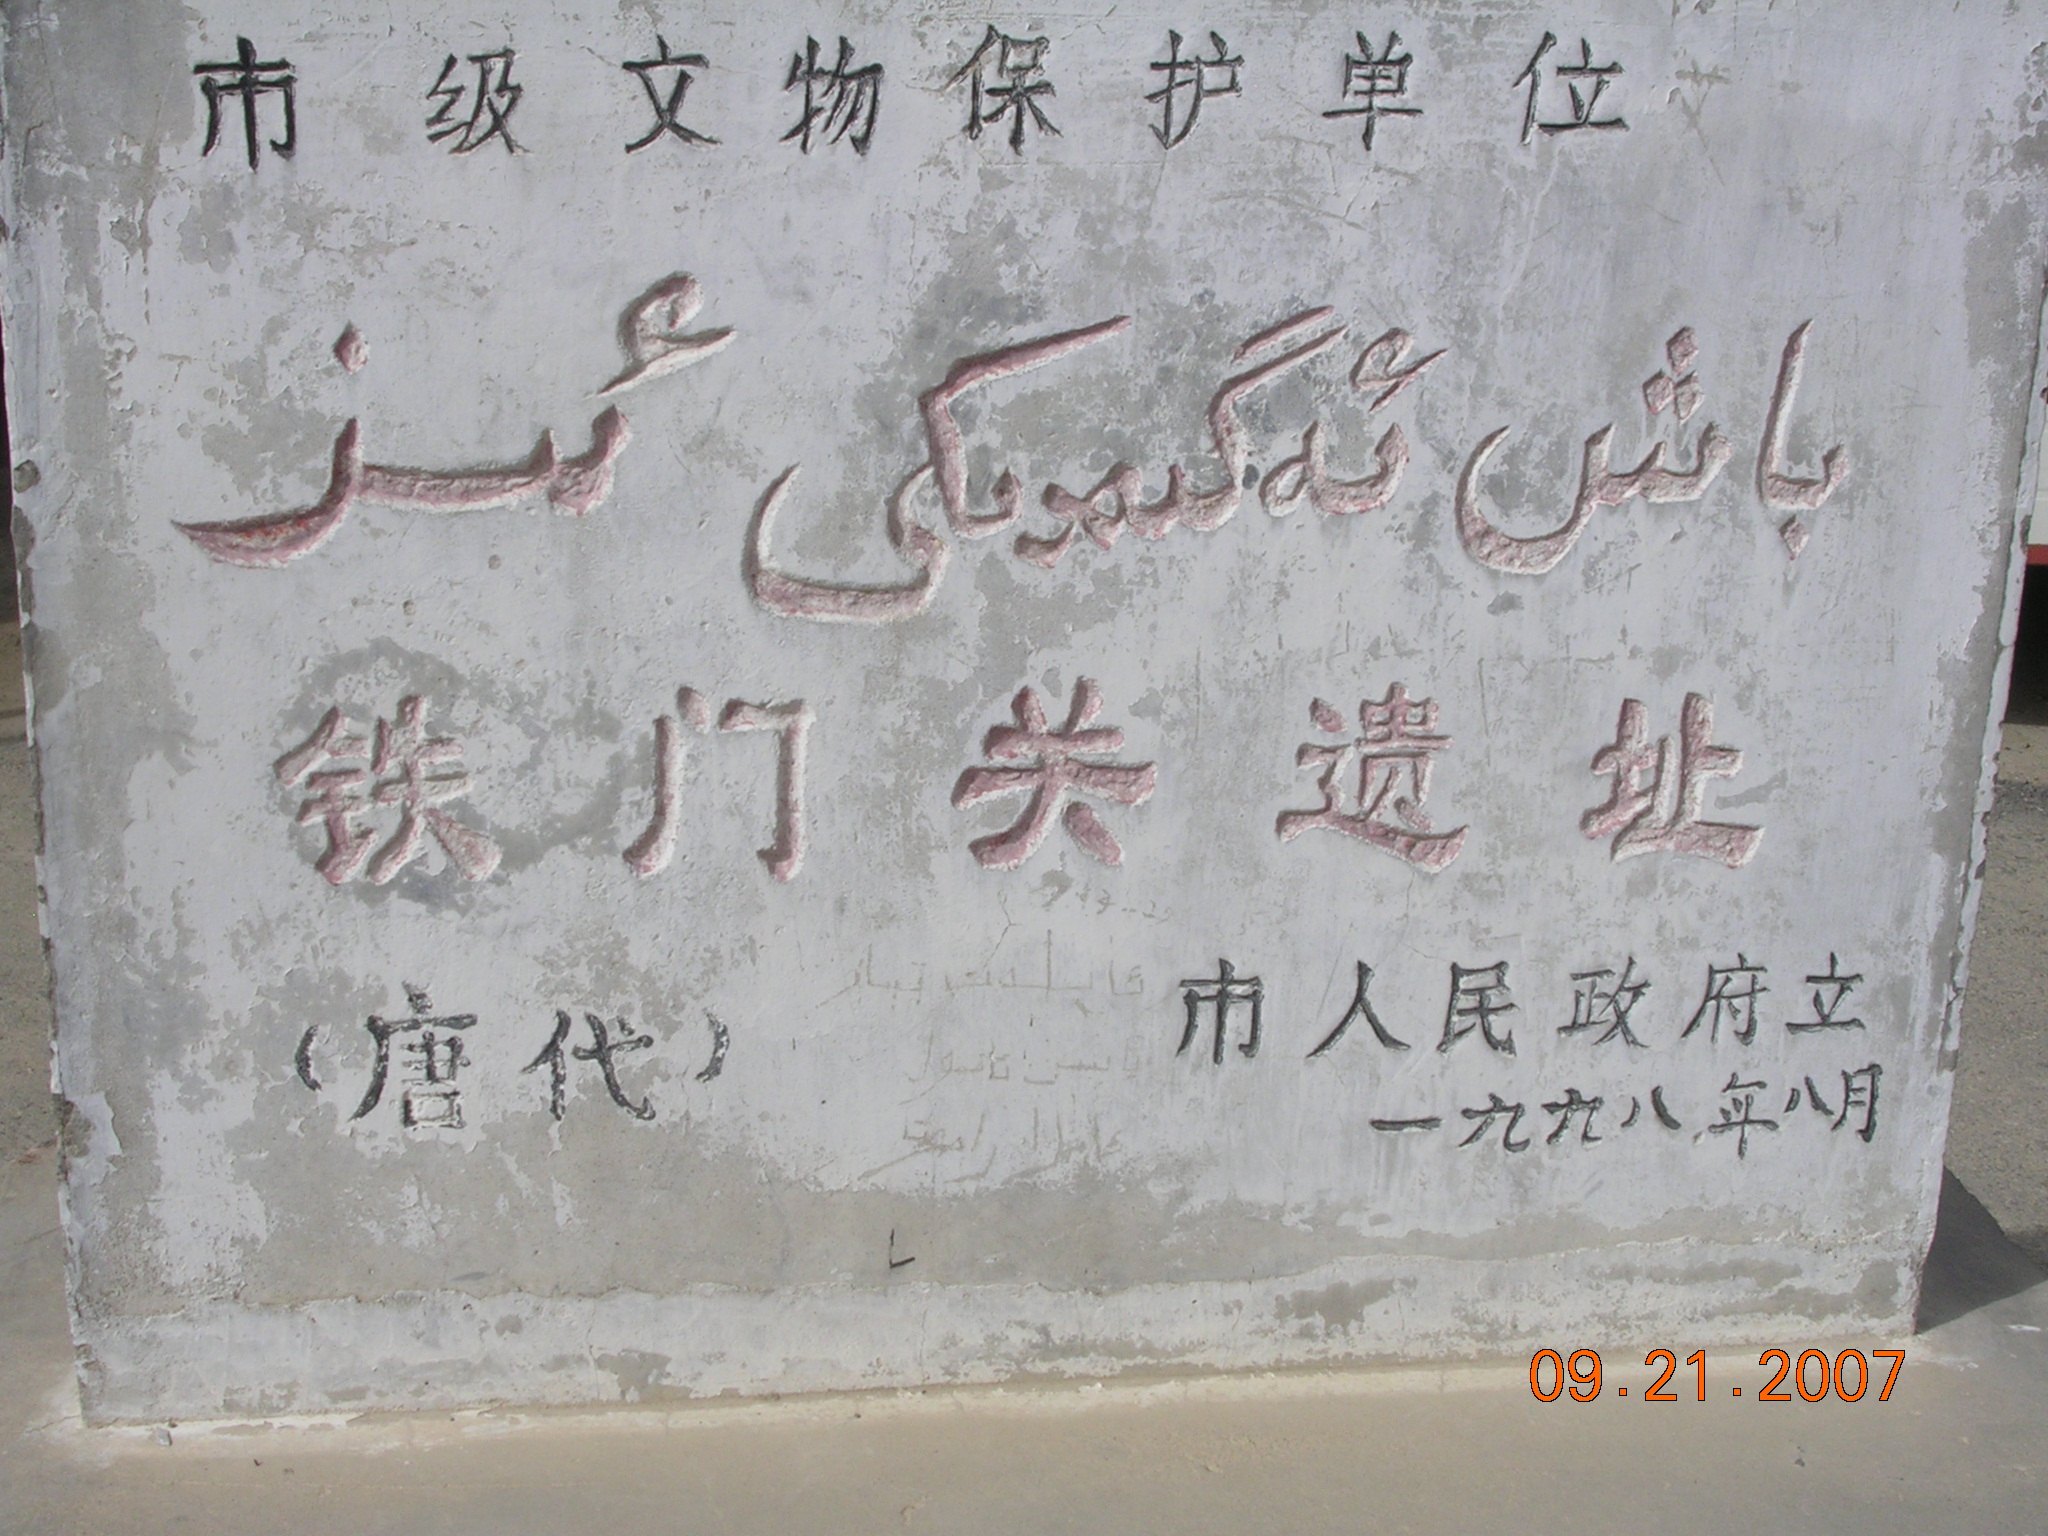 市级文物保护单位
باش ئەگىمىكى ئىز
铁门关遗址
(唐代)
市人民政府立
一九九八年八月
09.21.2007